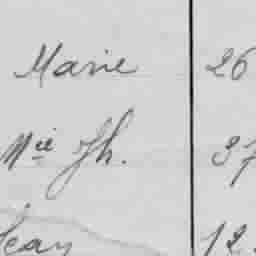 Marie 26
Mie Jh. 37
Jean 12